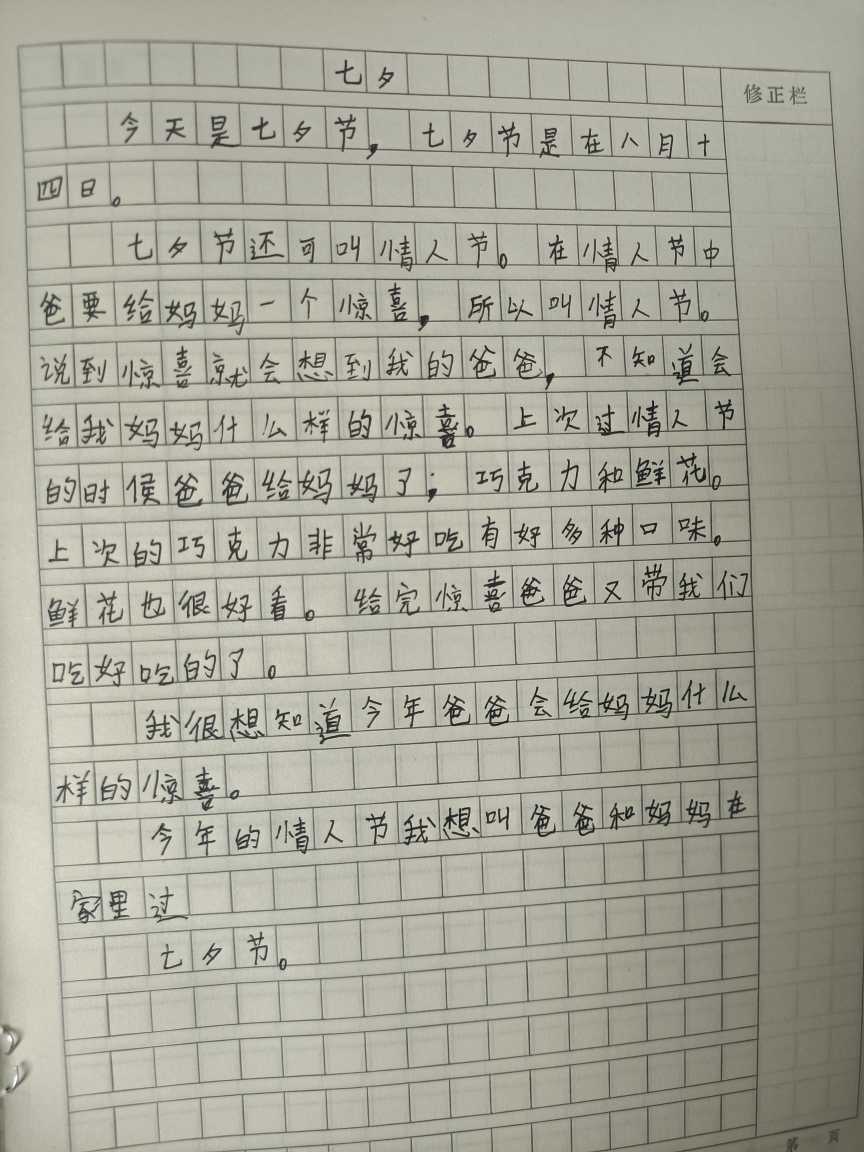 七夕
修正栏
今天是七夕节，七夕节是在八月十
四日。
七夕节还可叫情人节。在情人节中
爸要给妈妈一个惊喜，所以叫情人节。
说到惊喜就会想到我的爸爸，不知道会
给我妈妈什么样的惊喜。上次过情人节
的时候爸爸给妈妈了；巧克力和鲜花。
上次的巧克力非常好吃有好多种口味。
鲜花也很好看。给完惊喜爸爸又带我们
吃好吃的了。
我很想知道今年爸爸会给妈妈什么
样的惊喜。
今年的情人节我想叫爸爸和妈妈在
家里过
七夕节。
第 页